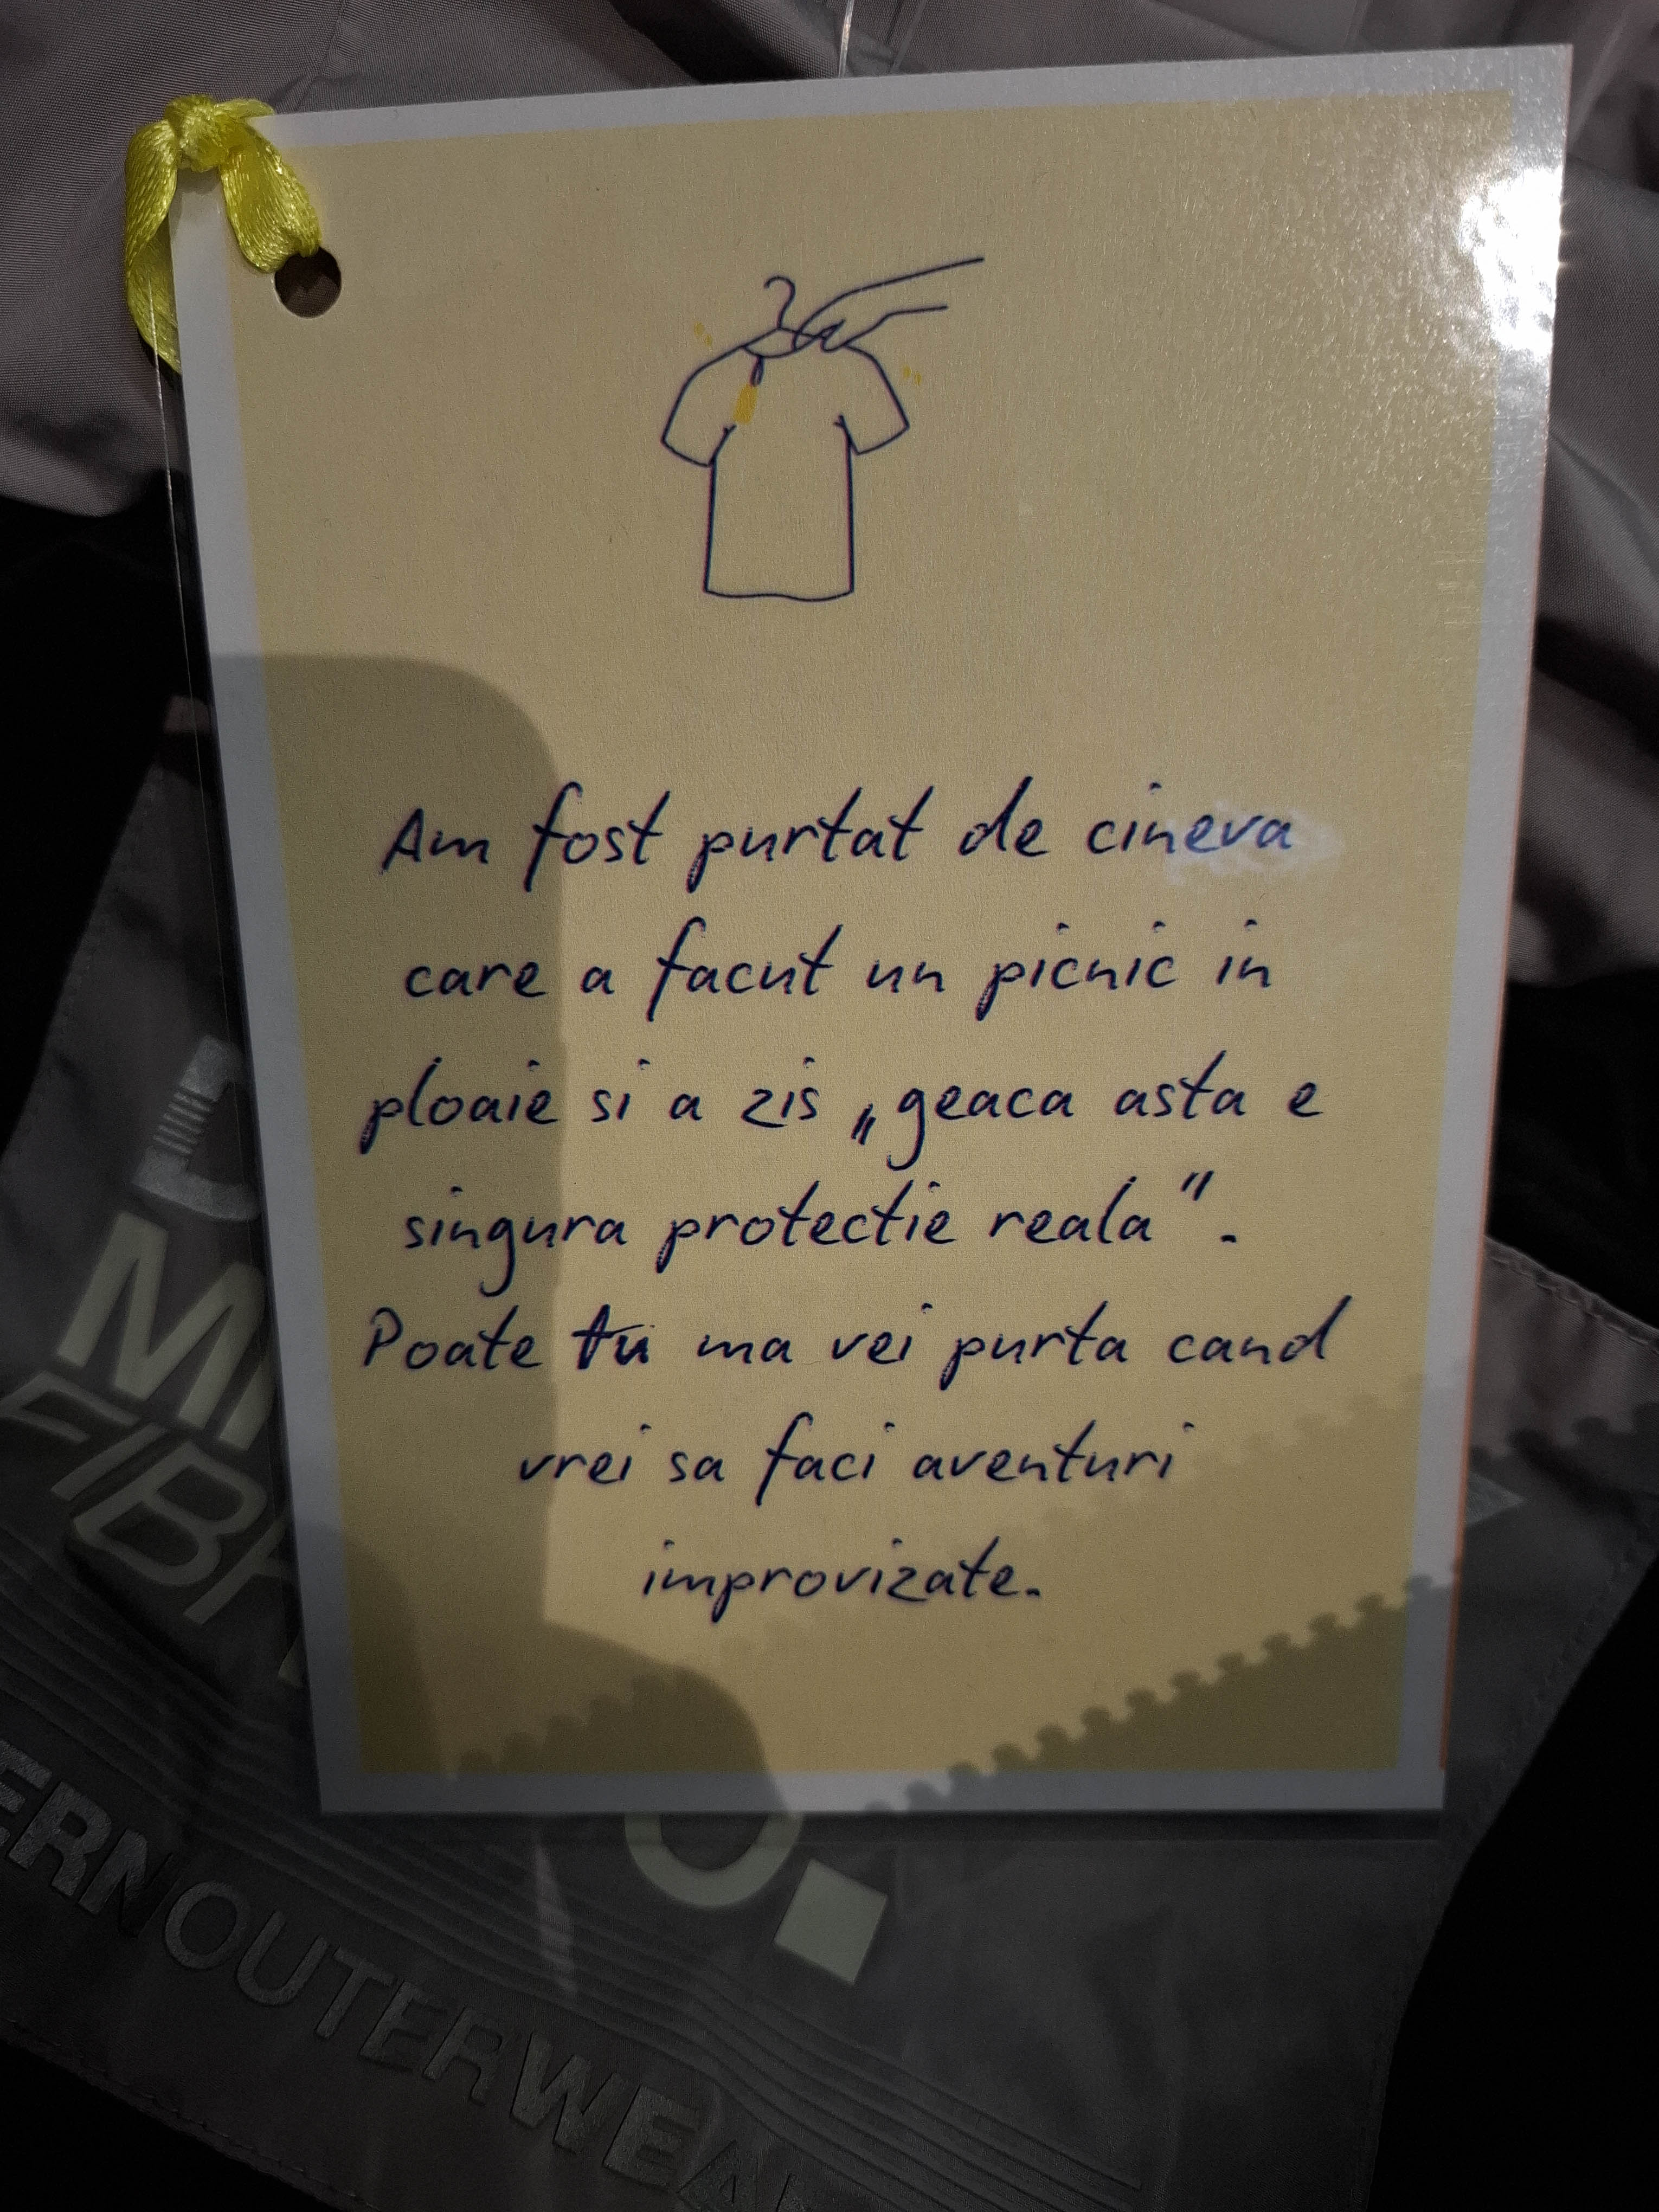 Am fost purtat de cineva
care a facut un picnic in
ploaie si a zis „geaca asta e
singura protectie reala".
Poate tu ma vei purta cand
vrei sa faci aventuri
improvizate.
ERNOUTERWEA